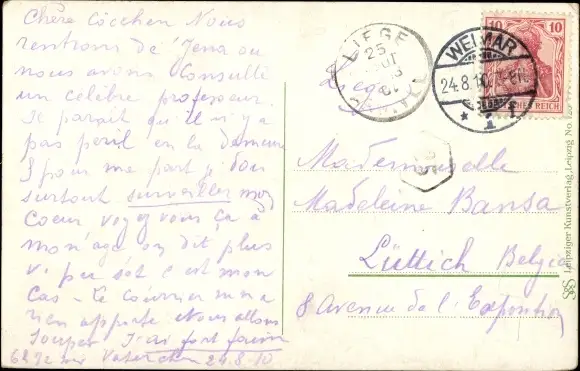 Chère Cöcchen Nous
rentrons de Jena ou
nous avons Consulté
un célèbre professeur
Je parait qu'il n'y a
pas peril en la demeure
pour ma part je dois
surtout surveiller mon
Coeur voyez vous ça à
mon age on dit plus
c est mon
cas - Le Courrier m'n a
rien apporté Nous allons
souper J'ai fort faim
24-8-10
LIEGE
25
WEIMAR
24.8.10
* 1
10 10
DEUTSCHES REICH
Mademoiselle
Madeleine Bansa
Lüttich Belgie
8 Avenue de l'Exposition
Leipziger Kunstverlag, Leipzig No.